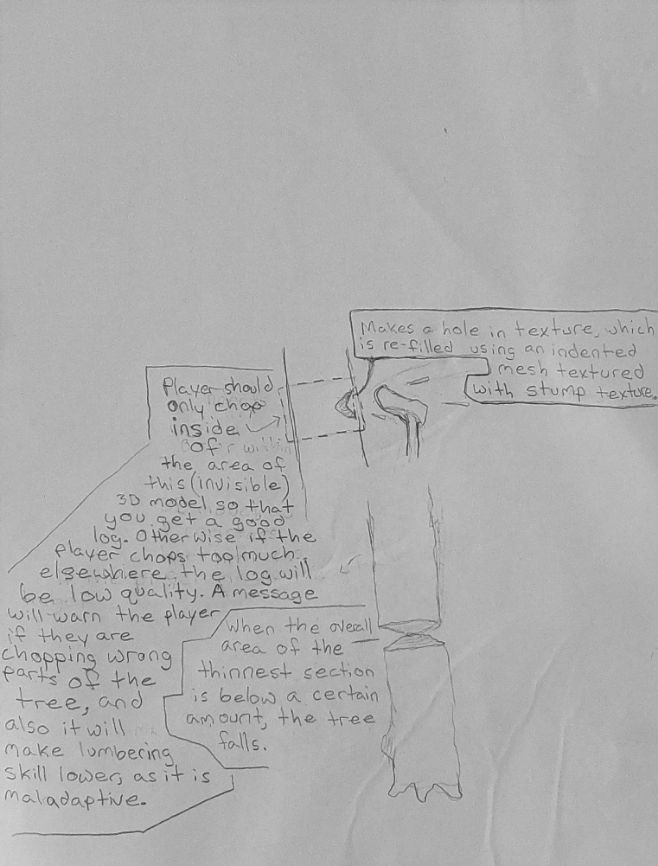 Makes a hole in texture, which
is re-filled using an indented
mesh textured
with stump texture.
Player should
only chop
inside
of
the area of
this (invisible)
3D model, so that
you get a good
log. Otherwise if the
player chops too much
elsewhere the log will
be low quality. A message
will warn the player
if they are
chopping wrong
parts of the
tree, and
also it will
make lumbering
skill lower, as it is
maladaptive.
When the overall
area of the
thinnest section
is below a certain
amount, the tree
falls.